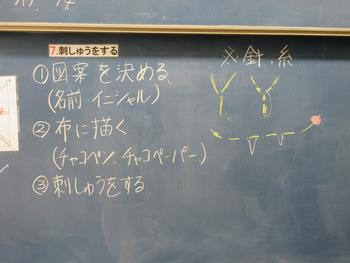 7.刺しゅうをする
①図案を決める
(名前・イニシャル)
②布に描く
(チャコペン、チャコペーパー)
③刺しゅうをする
※針・糸